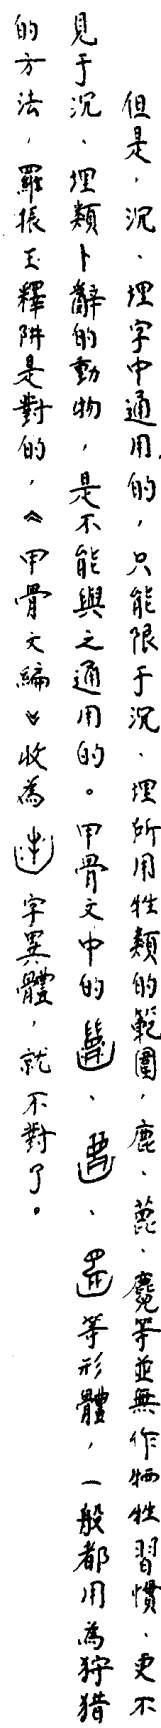 但是，沉、埋字中通用的，只能限于沉、埋所用牲類的範圍，鹿、麂、麑等並無作牺牲習慣、更不
見于沉、埋類卜辭的動物，是不能與之通用的。甲骨文中的、、等形體，一般都用為狩猎
的方法，羅振玉釋阱是對的，《甲骨文編》收為字異體，就不對了。